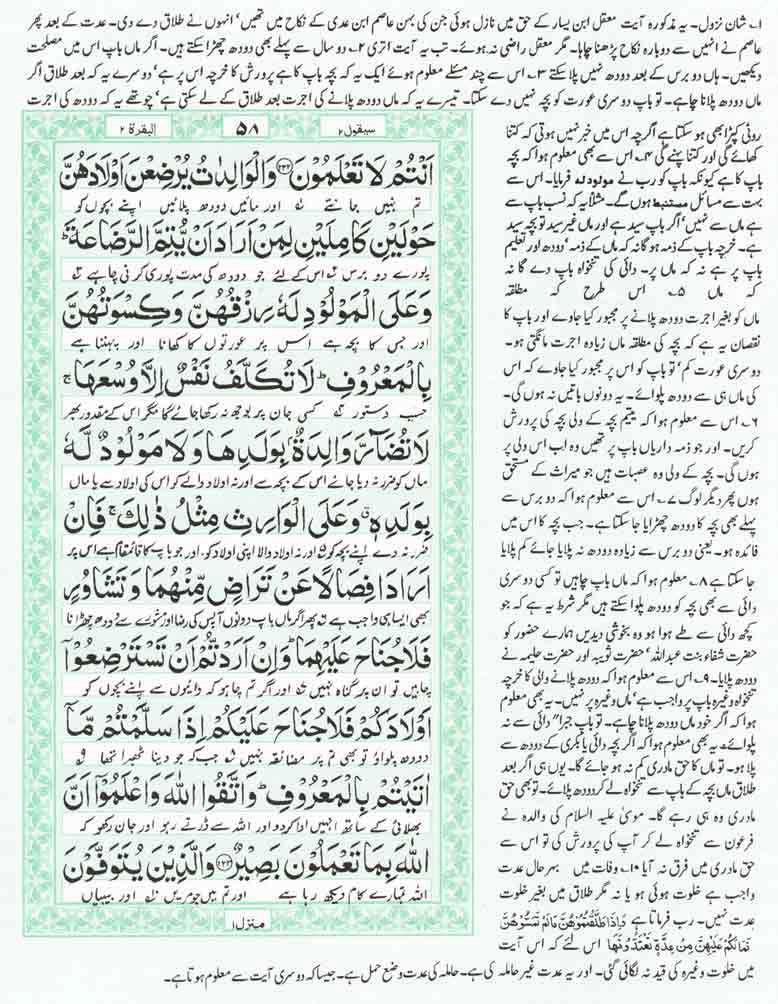 ۱؎ شان نزول۔ یہ مذکورہ آیت معقل ابن یسار کے حق میں نازل ہوئی جن کی بہن عاصم ابن عدی کے نکاح میں تھیں' انہوں نے طلاق دے دی۔ عدت کے بعد پھر
عاصم نے انہیں سے دوبارہ نکاح پڑھنا چاہا۔ مگر معقل راضی نہ ہوئے۔ تب یہ آیت اتری ۲؎ دو سال سے پہلے بھی دودھ چھڑا سکتے ہیں۔ اگر ماں باپ اس میں مصلحت
دیکھیں۔ ہاں دو برس کے بعد دودھ نہیں پلا سکتے ۳؎ اس سے چند مسئلے معلوم ہوئے ایک یہ کہ بچہ باپ کا ہے پرورش کا خرچہ اس پر ہے' دوسرے یہ کہ بعد طلاق اگر
ماں دودھ پلانا چاہے۔ تو باپ دوسری عورت کو بچہ نہیں دے سکتا۔ تیسرے یہ کہ ماں دودھ پلانے کی اجرت بعد طلاق کے لے سکتی ہے' چوتھے یہ کہ دودھ کی اجرت
روٹی کپڑا بھی ہو سکتا ہے اگرچہ اس میں خبر نہیں ہوتی کہ کتنا
کھائے گی اور کتنا پہنے گی ۴؎ اس سے بھی معلوم ہوا کہ بچہ
باپ کا ہے کیونکہ باپ کو رب نے مولود لہ فرمایا۔ اس سے
بہت سے مسائل مستنبط ہوں گے۔ مثلاً یہ کہ نسب باپ سے
ہے ماں سے نہیں' اگر باپ سید ہے اور ماں غیر سید تو بچہ سید
ہے۔ خرچہ باپ کے ذمہ ہو گا نہ کہ ماں کے ذمہ' دودھ اور تعلیم
باپ پر ہے نہ کہ ماں پر۔ دائی کی تنخواہ باپ دے گا نہ
کہ ماں ۵؎ اس طرح کہ مطلقہ
ماں کو بغیر اجرت دودھ پلانے پر مجبور کیا جاوے اور باپ کا
نقصان یہ ہے کہ بچہ کی مطلقہ ماں زیادہ اجرت مانگتی ہو۔
دوسری عورت کم' تو باپ کو اس پر مجبور کیا جاوے کہ اس
کی ماں ہی سے دودھ پلوائے۔ یہ دونوں باتیں نہ ہوں گی۔
۶؎ اس سے معلوم ہوا کہ یتیم بچہ کے ولی بچہ کی پرورش
کریں۔ اور جو ذمہ داریاں باپ پر تھیں وہ اب اس ولی پر
ہوں گی۔ بچہ کے ولی وہ عصبات ہیں جو میراث کے مستحق
ہوں پھر دیگر لوگ ۷؎ اس سے معلوم ہوا کہ دو برس سے
پہلے بھی بچہ کا دودھ چھڑایا جا سکتا ہے۔ جب بچہ کا اس میں
فائدہ ہو۔ یعنی دو برس سے زیادہ دودھ نہ پلایا جائے کم پلایا
جا سکتا ہے ۸؎ معلوم ہوا کہ ماں باپ چاہیں تو کسی دوسری
دائی سے بھی بچہ کو دودھ پلوا سکتے ہیں مگر شرط یہ ہے کہ جو
کچھ دائی سے طے ہوا ہو وہ بخوشی دیدیں ہمارے حضور کو
حضرت شفاء بنت عبداللہ' حضرت ثویبہ اور حضرت حلیمہ نے
دودھ پلایا۔ ۹؎ اس سے معلوم ہوا کہ دودھ پلانے والی کا خرچہ
تنخواہ وغیرہ باپ پر واجب ہے' ماں وغیرہ پر نہیں۔ یہ بھی معلوم
ہوا کہ اگر خود ماں دودھ پلانا چاہے۔ تو باپ جبراً" دائی سے نہ
پلوائے۔ یہ بھی معلوم ہوا کہ اگر بچہ دائی یا بکری کے دودھ سے
پلا ہو۔ تو ماں کا حق مادری کم نہ ہو جائے گا۔ یوں ہی اگر بعد
طلاق ماں بچہ کے باپ سے تنخواہ لے کر دودھ پلائے۔ تو بھی حق
مادری وہ ہی رہے گا۔ موسیٰ علیہ السلام کی والدہ نے
فرعون سے تنخواہ لے کر آپ کی پرورش کی تو اس سے
حق مادری میں فرق نہ آیا ۱۰؎ وفات میں بہرحال عدت
واجب ہے خلوت ہوئی ہو یا نہ مگر طلاق میں بغیر خلوت
عدت نہیں۔ رب فرماتا ہے
فَمَا لَكُمْ عَلَيْهِنَّ مِنْ عِدَّةٍ تَعْتَدُّونَهَا اس لئے کہ اس آیت
میں خلوت وغیرہ کی قید نہ لگائی گئی۔ اور یہ عدت غیر حاملہ کی ہے۔ حاملہ کی عدت وضع حمل ہے۔ جیسا کہ دوسری آیت سے معلوم ہوتا ہے۔
سیقول ۲ ۵۸ البقرة ۲
اَنْتُمْ لَا تَعْلَمُوْنَ ﴿۲۳۲﴾ وَالْوَالِدٰتُ يُرْضِعْنَ اَوْلَادَهُنَّ
تم نہیں جانتے اور مائیں دودھ پلائیں اپنے بچوں کو
حَوْلَيْنِ كَامِلَيْنِ لِمَنْ اَرَادَ اَنْ يُّتِمَّ الرَّضَاعَةَ ؕ
پورے دو برس اس کے لئے جو دودھ کی مدت پوری کرنی چاہے
وَعَلَى الْمَوْلُوْدِ لَهٗ رِزْقُهُنَّ وَكِسْوَتُهُنَّ
اور جس کا بچہ ہے اس پر عورتوں کا کھانا اور پہننا ہے
بِالْمَعْرُوْفِ ؕ لَا تُكَلَّفُ نَفْسٌ اِلَّا وُسْعَهَا ۚ
حسب دستور کسی جان پر بوجھ نہ رکھا جائے گا مگر اس کے مقدور بھر
لَا تُضَآرَّ وَالِدَةٌۢ بِوَلَدِهَا وَلَا مَوْلُوْدٌ لَّهٗ
ماں کو ضرر نہ دیا جائے اس کے بچہ سے اور نہ اولاد والے کو اس کی اولاد سے یا ماں
بِوَلَدِهٖ ۗ وَعَلَى الْوَارِثِ مِثْلُ ذٰلِكَ ۚ فَاِنْ
ضرر نہ دے اپنے بچہ کو اور نہ اولاد والا اپنی اولاد کو اور جو باپ کا قائم مقام ہے اس پر
اَرَادَا فِصَالًا عَنْ تَرَاضٍ مِّنْهُمَا وَتَشَاوُرٍ
بھی ایسا ہی واجب ہے پھر اگر ماں باپ دونوں آپس کی رضا اور مشورے سے دودھ چھڑانا
فَلَا جُنَاحَ عَلَيْهِمَا ؕ وَاِنْ اَرَدْتُّمْ اَنْ تَسْتَرْضِعُوْٓا
چاہیں تو ان پر گناہ نہیں اور اگر تم چاہو کہ دائیوں سے اپنے بچوں کو
اَوْلَادَكُمْ فَلَا جُنَاحَ عَلَيْكُمْ اِذَا سَلَّمْتُمْ مَّآ
دودھ پلواؤ تو بھی تم پر مضائقہ نہیں جب کہ جو دینا ٹھہرا تھا
اٰتَيْتُمْ بِالْمَعْرُوْفِ ؕ وَاتَّقُوا اللّٰهَ وَاعْلَمُوْٓا اَنَّ
بھلائی کے ساتھ انہیں ادا کر دو اور اللہ سے ڈرتے رہو اور جان رکھو کہ
اللّٰهَ بِمَا تَعْمَلُوْنَ بَصِيْرٌ ﴿۲۳۳﴾ وَالَّذِيْنَ يُتَوَفَّوْنَ
اللہ تمہارے کام دیکھ رہا ہے اور تم میں جو مریں اور بیبیاں
منزل ۱